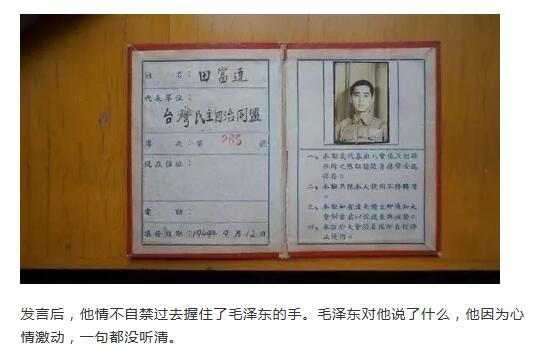 姓名：田富達
代表單位：
台灣民主自治同盟
席次：第 285 號
現在住址：
電話：
填發日期：1949年9月12日
一、本證為代表出入會場及招待
保存。
二、本證只限本人使用不得轉借。
三、本證如有遺失請立即通知大
四、本證於大會
止使用。
发言后，他情不自禁过去握住了毛泽东的手。毛泽东对他说了什么，他因为心
情激动，一句都没听清。